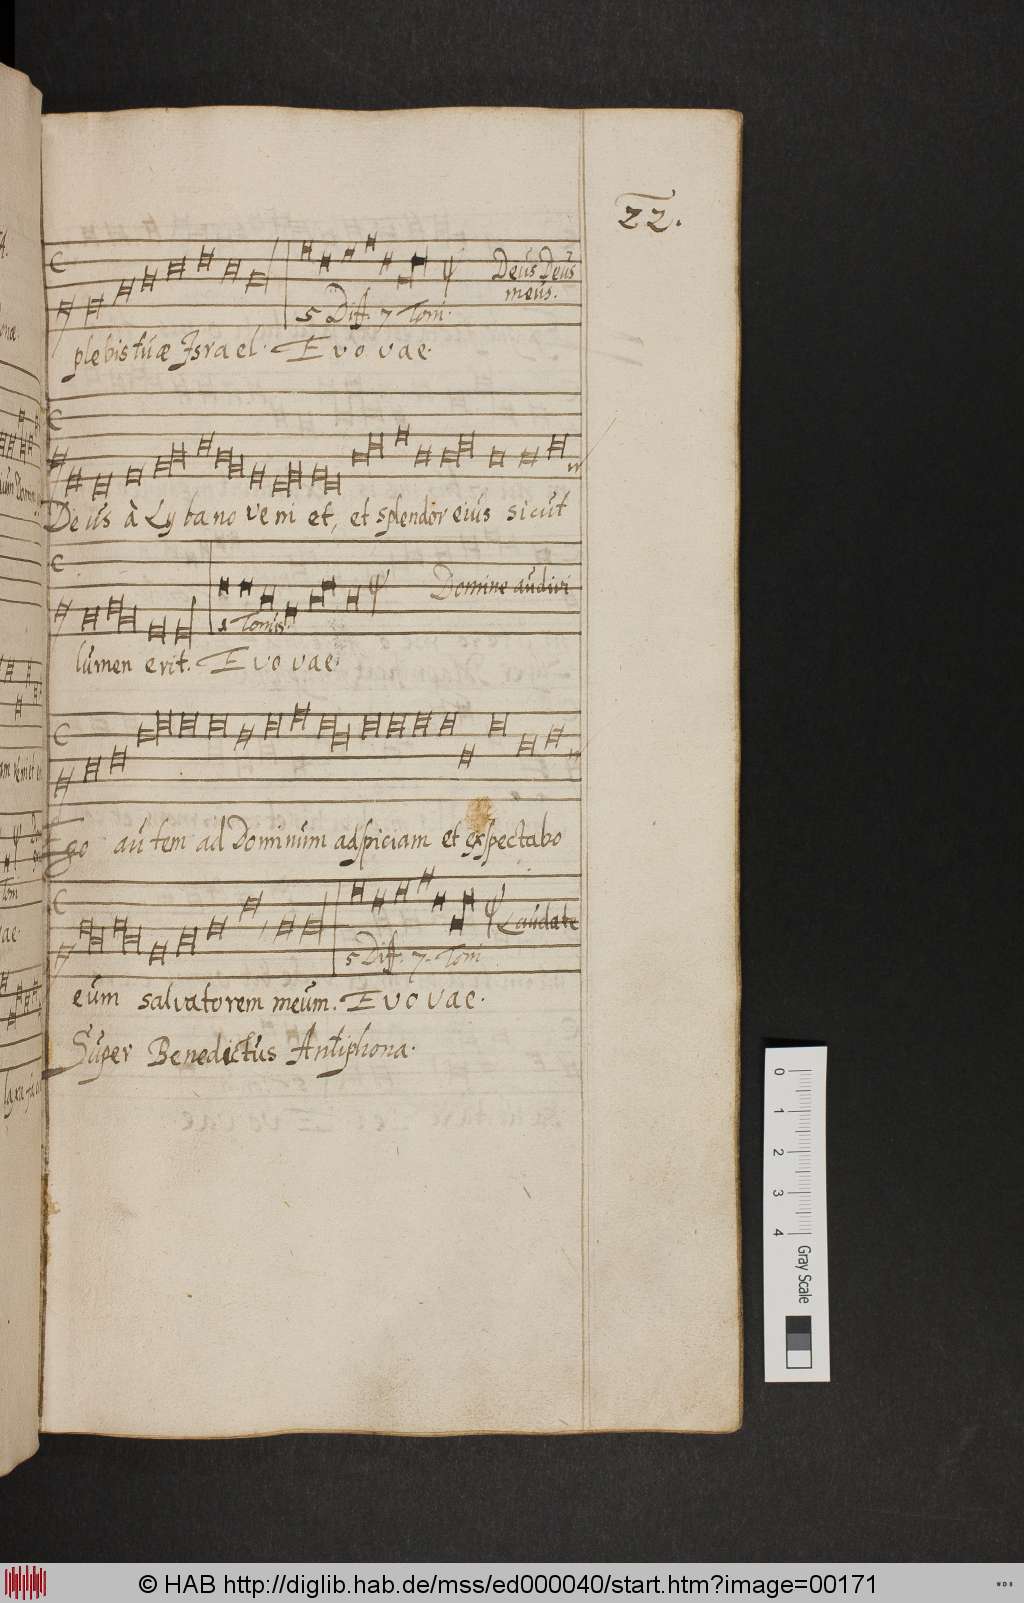 22.
Deus Deus
meus.
5 Diff. 7 Toni.
plebis tuæ Israel. Evovae.
Deus à Lybano veni et, et splendor eius sicut
Domine audivi
1 Tonus.
lumen erit. Evovae.
Ego autem ad Dominum adspiciam et expectabo
Laudate
5 Diff. 7. Toni
eum salvatorem meum. Evovae.
Super Benedictus Antiphona.
0 1 2 3 4 Gray Scale
© HAB http://diglib.hab.de/mss/ed000040/start.htm?image=00171